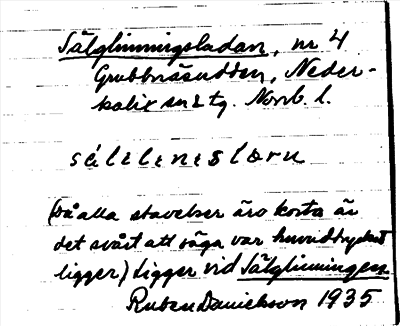 Sälglinningsladan, nr 4
Grubbnäsudden, Neder-
kalix sn & tg. Norrb. l.
(Då alla stavelser äro korta är
det svårt att säga var huvudtrycket
ligger) Ligger vid Sälglinningen.
Ruben Danielsson 1935